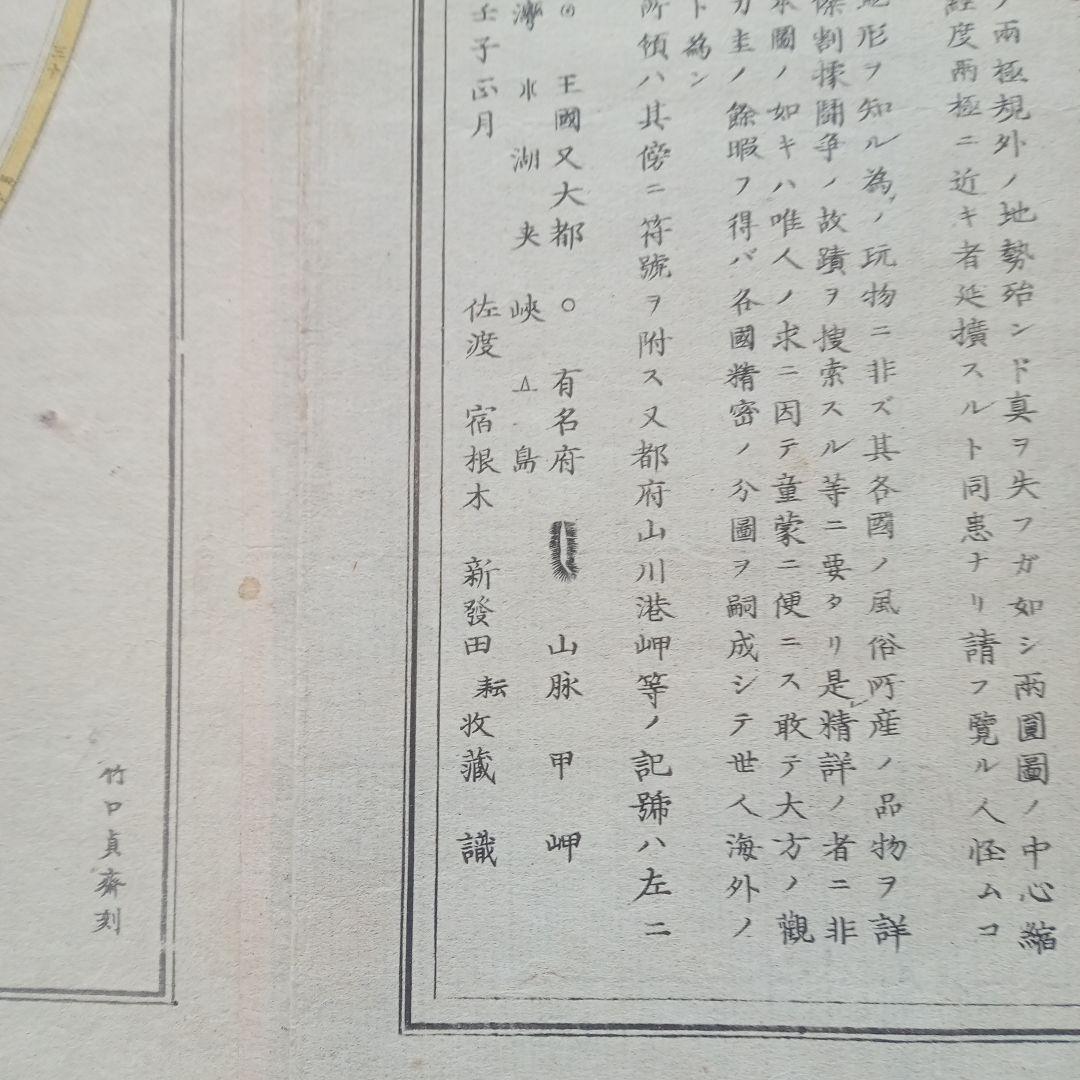 ノ兩極規外ノ地勢殆ンド真ヲ失フガ如シ兩圓圖ノ中心縮
經度兩極ニ近キ者延擴スルト同患ナリ請フ覽ル人怪ムコ
形ヲ知ル為ノ玩物ニ非ズ其各國ノ風俗所産ノ品物ヲ詳
割據鬪爭ノ故蹟ヲ搜索スル等ニ要タリ是精詳ノ者ニ非
圖ノ如キハ唯人ノ求ニ因テ童蒙ニ便ニス敢テ大方ノ觀
ト為ン
カ主ノ餘暇フ得バ各國精密ノ分圖ヲ嗣成シテ世人海外ノ
所領ハ其傍ニ符號ヲ附ス又都府山川港岬等ノ記號ハ左ニ
王國又大都 ○ 有名府 山脉 甲 岬
灣 水 湖 夾 峽 △ 島
壬子正月 佐渡 宿根木 新發田耘收藏 識
竹口貞齋刻
三